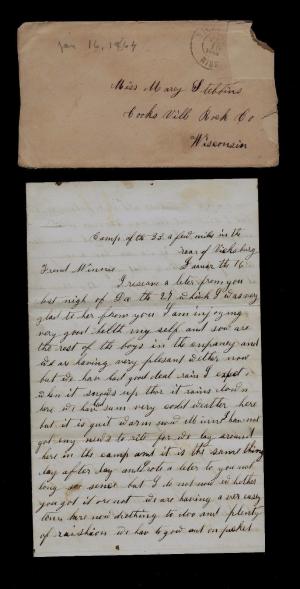 Jan 16, 1864
Miss Mary Stebbins
Cooks Vill Rock Co
Wisconsin
Camp of the 33 a few miles in the
rear of Vicksburg
Frend Minerva Januar the 16
I receiva a leter from you
last nigh of De the 27 which I was very
glad to her from you I am injoying
very good helth my self and soo are
the rest of the boys in the company and
we ar having very plesant wether now
but we hav had good deal rain I expct
when it snows up ther it rains down
here we hav sum very cold weather here
but it is quit warm now
got any news to rite for we lay around
here in the camp and it is the same thing
day after day and I rote a leter to you not
long go sence but I do not now whether
you got it ore not we are having a ver easy
tim here now nothing to doo and plenty
of raishion we hav to gow out on picket